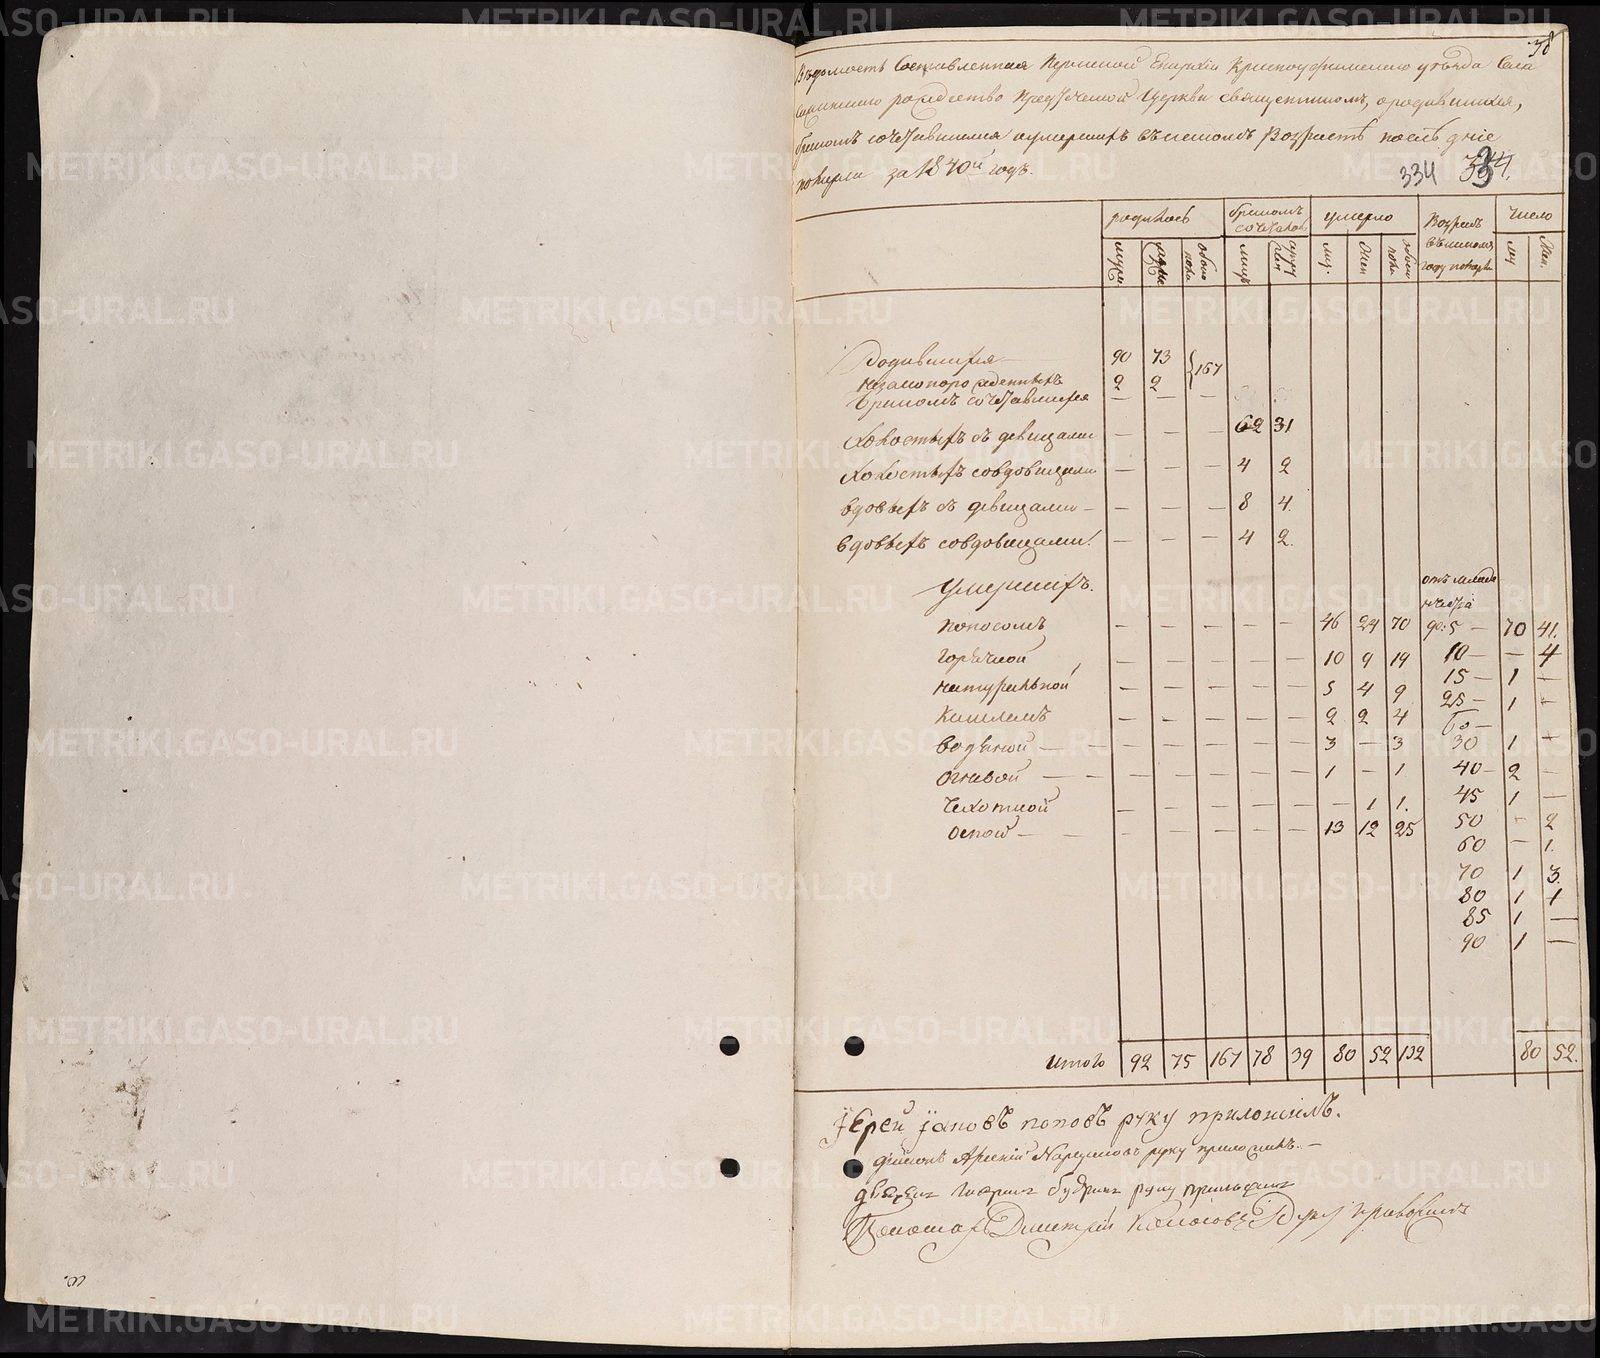 38
Ведомость Составленная Пермской Епархіи Красноуфимскаго уѣзда Села
рождество Предтеченской Церкви священникомъ, о родившихся,
бракомъ сочетавшихся и умершихъ
за 1840й годъ.
334 334.
родилось бракомъ сочеталось умерло Возрастъ въ какомъ году померли Число
муж. жен. обоего пола муж. жен. обоего пола му жен.
Родившихся 90 73 167
незаконорожденныхъ 2 2
Бракомъ сочетавшихся — — —
Холостыхъ съ девицами — — — 62 31
Холостыхъ со вдовицами — — — 4 2
вдовыхъ съ девицами — — — — 8 4.
вдовыхъ со вдовицами. — — — 4 2.
Умершихъ.
отъ младенчества
поносомъ — — — — — 46 24 70 до: 5 — 70 41.
Горячкой — — — — — 10 9 19 10 — — 4
натуральной — — — — — 5 4 9 15 — 1 —
25 — 1 —
Кашлемъ — — — — — 2 2 4
водяной — — — — — — 3 — 3 30 1 —
огневой — — — — — — — 1 — 1 40 — 2 —
Чахоткой — — — — — — 1 1. 45 1 —
оспой — — — — — — — 13 12 25 50 — 2
60 — 1.
70 1 3.
80 1 1
85 1 —
90 1 —
Итого 92 75 167 78 39 80 52 132 80 52.
Іерей Іаковъ поповъ руку приложилъ.
діаконъ Арсеній руку приложилъ. —
руку приложилъ
Пономарь Дмитрій руку приложилъ
METRIKI.GASO-URAL.RU